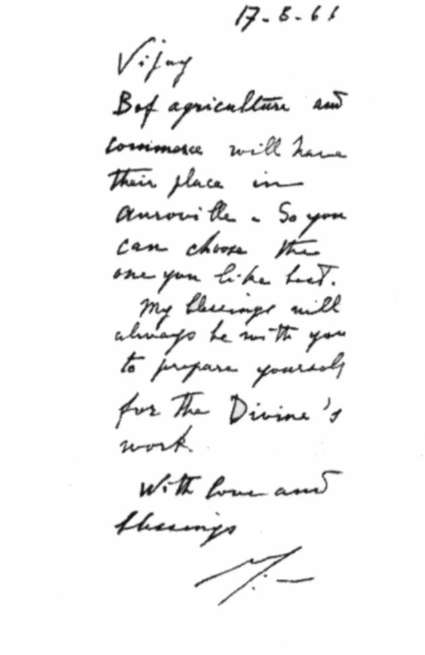 17-5-61
Vijay
Bof agriculture and
commerce will have
their place in
Auroville. So you
can choose the
one you like best.
My blessings will
always be with you
to prepare yourself
for the Divine's
work.
With love and
blessings